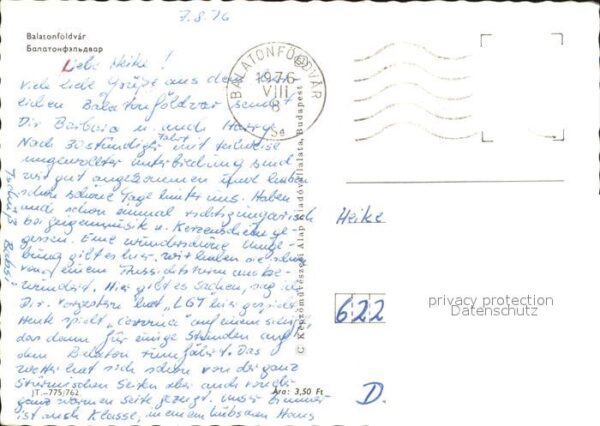 7.8.76
Balatonföldvár
Балатонфэльдвар
Liebe Heike!
Viele liebe Grüße aus dem
Balatonföldvar sendet
Dir Barbara u. auch Harry.
Nach 30stündiger Fahrt mit teilweise
ungewollter Unterbrechung sind
wir gut angekommen und haben
schon schöne Tage hinter uns. Haben
auch schon einmal richtig ungarisch
bei Zigeunermusik u. Kerzenschein ge-
gessen. Eine wunderschöne Umge-
bung gibt es hier, wir haben sie schon
von einem Aussichtsturm aus be-
wundert. Hier gibt es Sachen, sag ich
Dir. Vorgestern hat "LGT" hier gespielt.
Heute spielt "Corvina" auf einem Schiff,
das dann für einige Stunden auf
dem Balaton rumfährt. Das
Wetter hat sich schon von der ganz
stürmischen Seite aber auch von der
ganz warmen Seite gezeigt. Unser Zimmer
ist auch Klasse, in einem hübschen Haus
Tschüß Babsi
BALATONFÖLDVÁR
1976
VIII
8
C Képzőművészeti Alap Kiadóvállalata, Budapest
Heike
622
D.
privacy protection
Datenschutz
JT.—775/762
Ára: 3,50 Ft